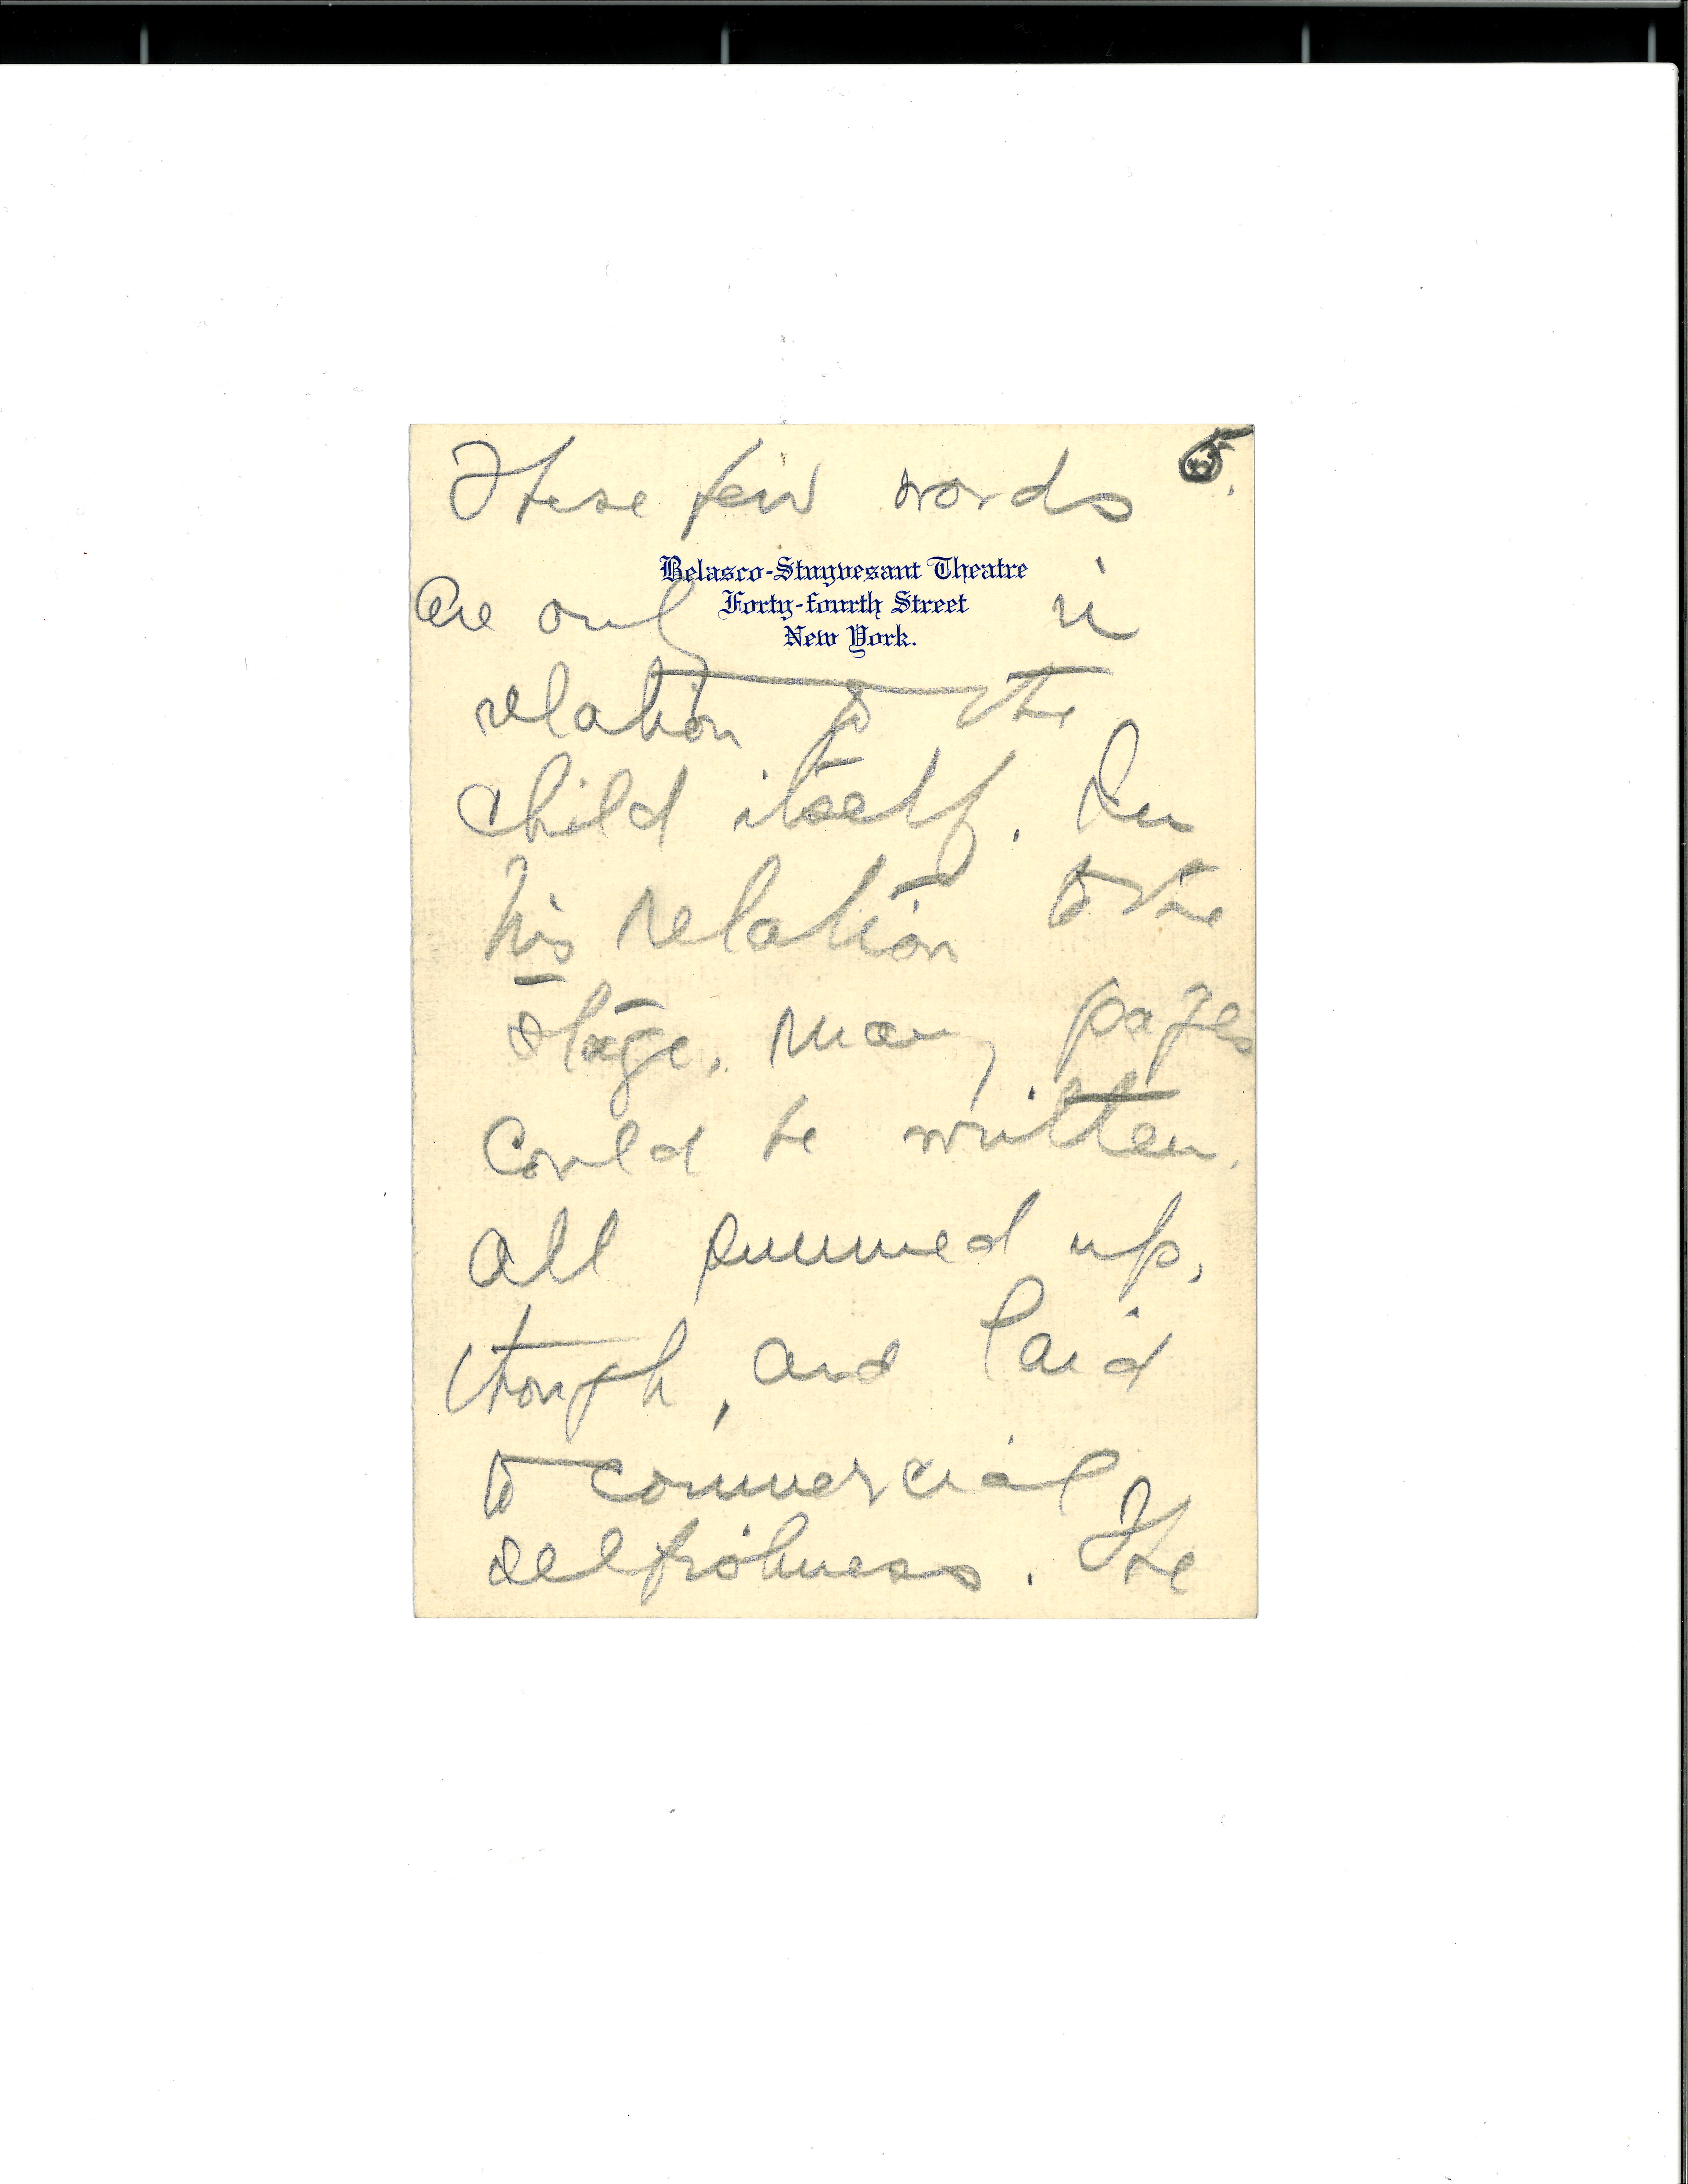 5.
These few words
Belasco-Stuyvesant Theatre
Forty-fourth Street
New York.
are only in
relation to the
child itself. In
his relation to the
stage, many pages
could be written.
All summed up,
though, and laid
to commercial
selfishness. The